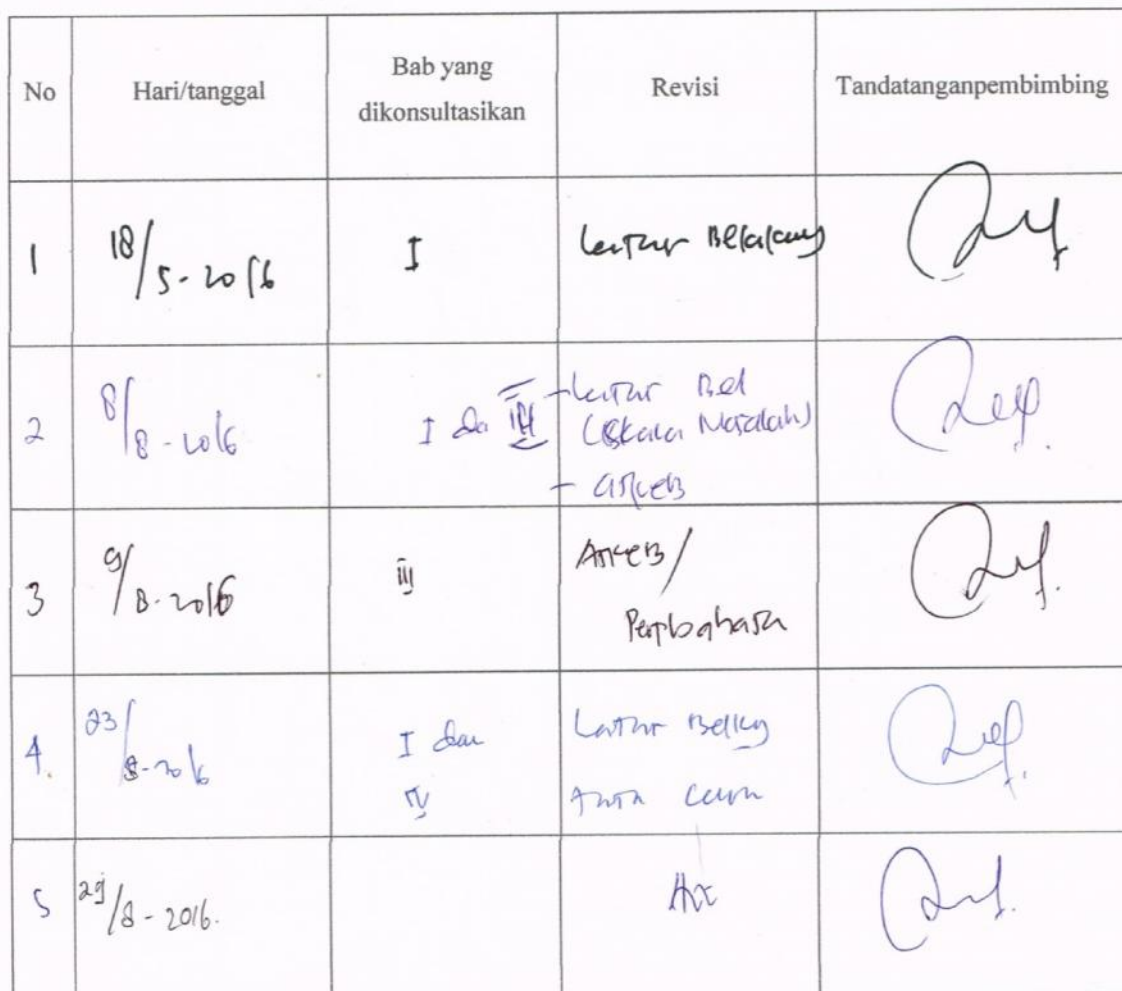 No
Hari/tanggal
Bab yang
dikonsultasikan
Revisi
Tandatanganpembimbing
1
18/5-2016
I
Latar Belakang
2
8/8-2016
I da III
- Latar Bel
(Skala Masalah)
- Askeb
3
9/8-2016
iii
Askeb/
Pembahasan
4.
23/8-2016
I dan
IV
Latar Belkg
5
29/8-2016.
Acc